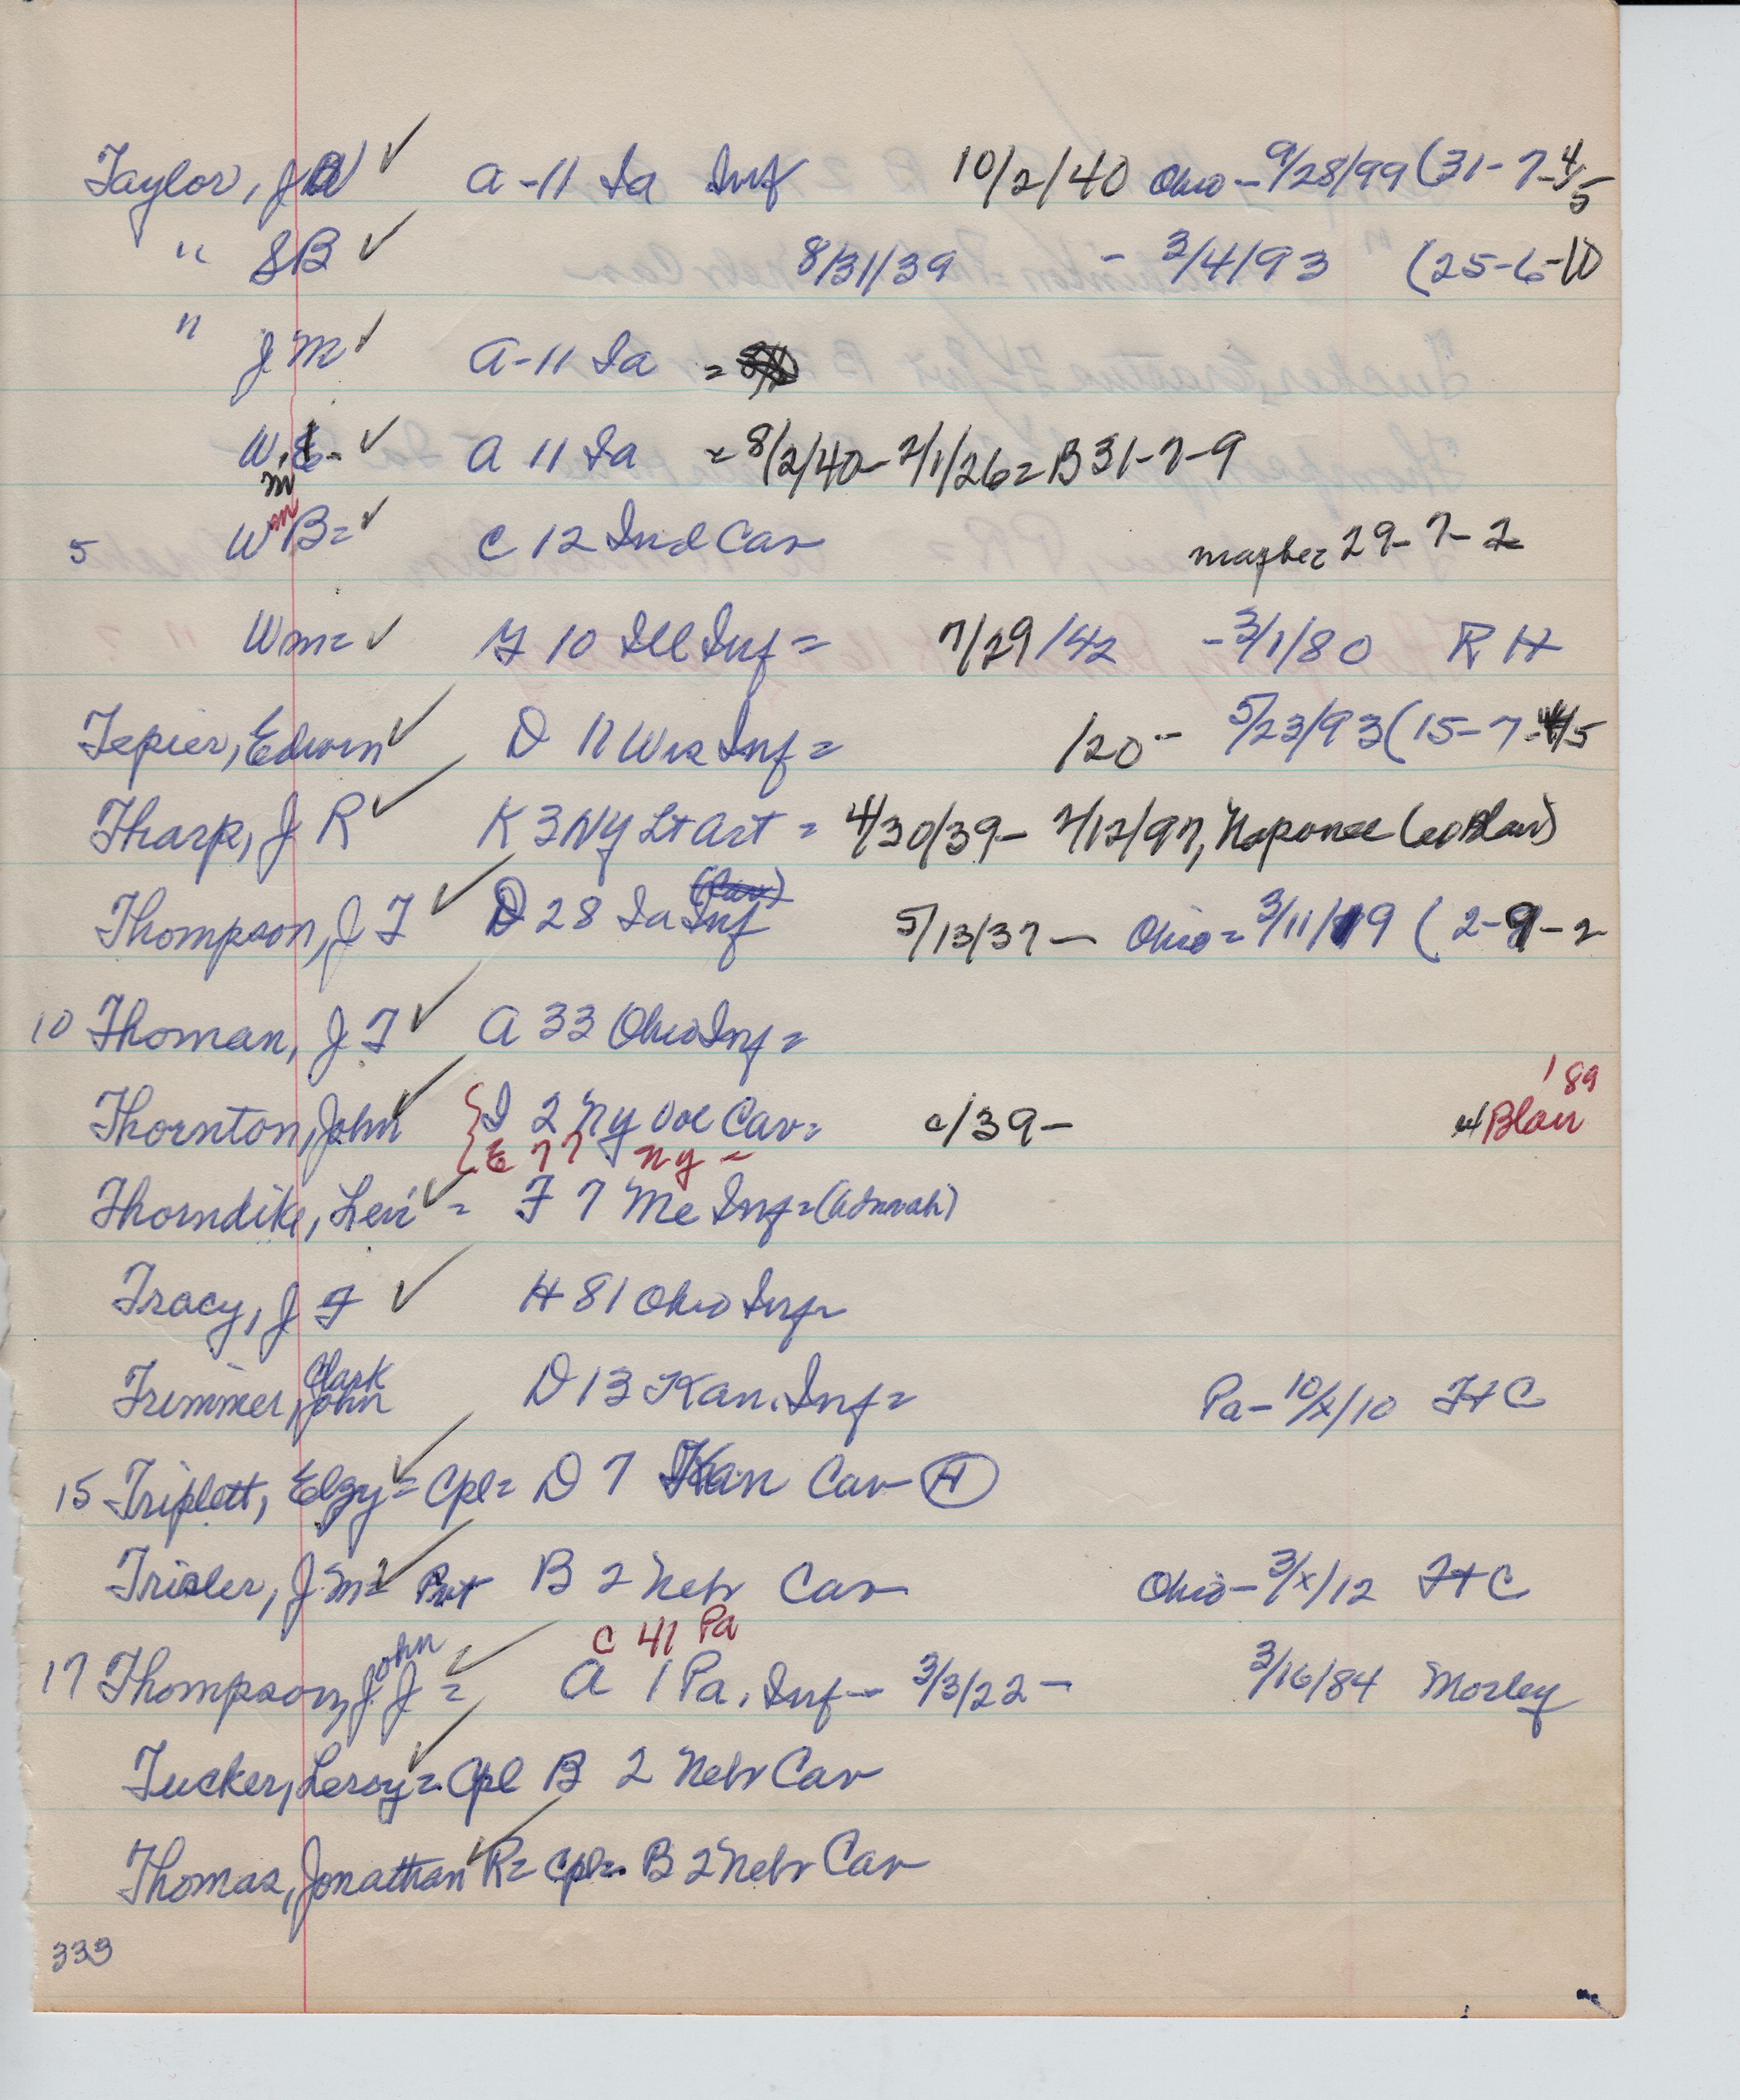 Taylor, J W ✓ A-11 Ia Inf 10/2/40 Ohio - 9/28/99 (31-7-4/5
" S B ✓ 8/31/39 - 3/4/93 (25-6-10
" J M ✓ A-11 Ia =
W. ✓ A 11 Ia = 8/2/40 - 2/1/26 = B 31-7-9
m
5 Wm B = ✓ C 12 Ind Cav maybe 29-7-2
Wm = ✓ 10 Ill Inf = 7/29/42 - 3/1/80 R H
Tepier, Edwin ✓ D 11 Wis Inf = /20 - 5/23/93 (15-7-4/5
Tharp, J R ✓ K 3 NY Lt Art = 4/30/39 - 2/12/97, Naponee (Blair)
Thompson, J F ✓ D 28 Ia Inf (Cav) 5/13/37 - Ohio = 3/11/19 (2-9-2
10 Thoman, J F ✓ A 33 Ohio Inf =
' 89
Thornton, John ✓ { I 2 Ny Vol Cav = c/39 - Blair
{ E 77 Ny =
Thorndike, Levi ✓ = F 7 Me Inf =
Tracy, J F ✓ H 81 Ohio Inf =
Clark
Trimmer, John D 13 Kan. Inf = Pa - 10/x/10 F H C
15 Triplett, Elzy ✓ = Cpl = D 7 Kan Cav - (H)
Trisler, J M = ✓ Pvt B 2 Nebr Cav Ohio - 3/x/12 F H C
C 41 Pa
17 Thompson, John J = ✓ A 1 Pa. Inf - 3/3/22 - 3/16/84 Mosley
Tucker, Leroy ✓ = Cpl B 2 Nebr Cav
Thomas, Jonathan R = ✓ Cpl = B 2 Nebr Cav
333